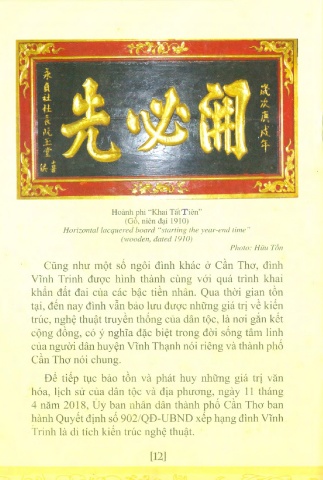 歲次庚戌年
開必先
永貞社社長阮
Hoành phi “Khai Tất Tiên”
(Gỗ, niên đại 1910)
Horizontal lacquered board “starting the year-end time”
(wooden, dated 1910)
Photo: Hữu Tôn
Cũng như một số ngôi đình khác ở Cần Thơ, đình
Vĩnh Trinh được hình thành cùng với quá trình khai
khẩn đất đai của các bậc tiền nhân. Qua thời gian tồn
tại, đến nay đình vẫn bảo lưu được những giá trị về kiến
trúc, nghệ thuật truyền thống của dân tộc, là nơi gắn kết
cộng đồng, có ý nghĩa đặc biệt trong đời sống tâm linh
của người dân huyện Vĩnh Thạnh nói riêng và thành phố
Cần Thơ nói chung.
Để tiếp tục bảo tồn và phát huy những giá trị văn
hóa, lịch sử của dân tộc và địa phương, ngày 11 tháng
4 năm 2018, Ủy ban nhân dân thành phố Cần Thơ ban
hành Quyết định số 902/QĐ-UBND xếp hạng đình Vĩnh
Trinh là di tích kiến trúc nghệ thuật.
[12]